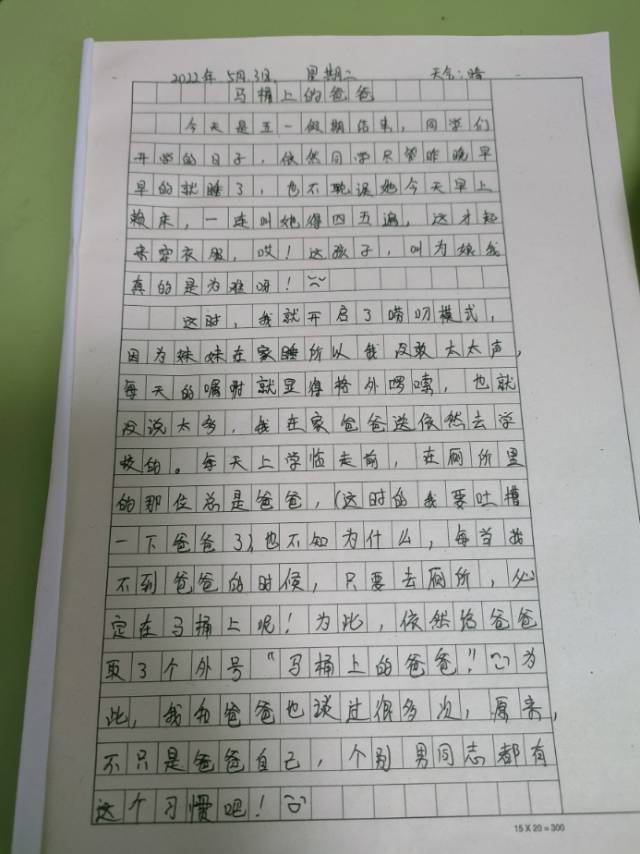 2022年 5月3日 星期二 天气:晴
马桶上的爸爸
今天是五一假期结束,同学们
开学的日子,依然同学只管昨晚早
早的就睡了,也不耽误她今天早上
赖床,一连叫她得四五遍,这才起
来穿衣服,哎!这孩子,叫为娘我
真的是为难呀!
这时,我就开启了唠叨模式,
因为妹妹在家睡所以我没敢太大声,
每天的嘱咐就显得格外啰嗦,也就
没说太多,我在家爸爸送依然去学
校的。每天上学临走前,在厕所里
的那位总是爸爸,(这时的我要吐槽
一下爸爸了)也不知为什么,每当找
不到爸爸的时候,只要去厕所,必
定在马桶上呢!为此,依然给爸爸
取了个外号“马桶上的爸爸!”为
此,我和爸爸也谈过很多次,原来,
不只是爸爸自己,个别男同志都有
这个习惯吧!
15 X 20 = 300